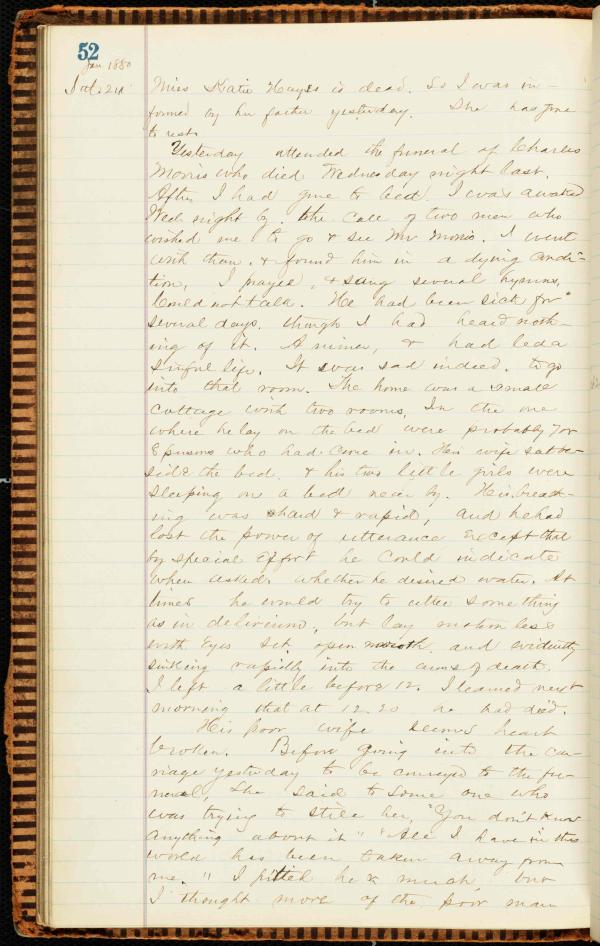 52
Jan. 1880
Sat. 24
Miss Katie Hayes is dead. So I was in-
formed by her father yesterday. She has gone
to rest.
Yesterday attended the funeral of Charles
Morris who died Wednesday night last.
After I had gone to bed. I was awaked
Wed. night by the call of two men who
wished me to go & see Mr Morris. I went
with them. & found him in a dying condi-
tion, I prayed, & sang several hymns,
Could not talk. He had been sick for
several days. though I had heard noth-
ing of it. A miner, & had led a
sinful life. It was sad indeed. to go
into that room. The home was a small
cottage with two rooms, In the one
where he lay on the bed were probably 7 or
8 persons who had come in. His wife sat be-
side the bed. & his two little girls were
sleeping on a bed near by. His breath-
ing was hard & rapid, and he had
lost the power of utterance except that
by special effort he could indicate
when asked. whether he desired water. At
times he would try to utter something
as in delirium, but lay motionless
with eyes set, open mouth and evidently
sinking rapidly into the arms of death.
I left a little before 12. I learned next
morning that at 12.20 he had died.
His poor wife seemed heart
broken. Before going into the car-
riage yesterday to be conveyed to the fu-
neral, she said to some one who
was trying to still her, "You don't know
anything about it" "All I have in this
world has been taken away from
me." I pitied her much, but
I thought more of the poor man